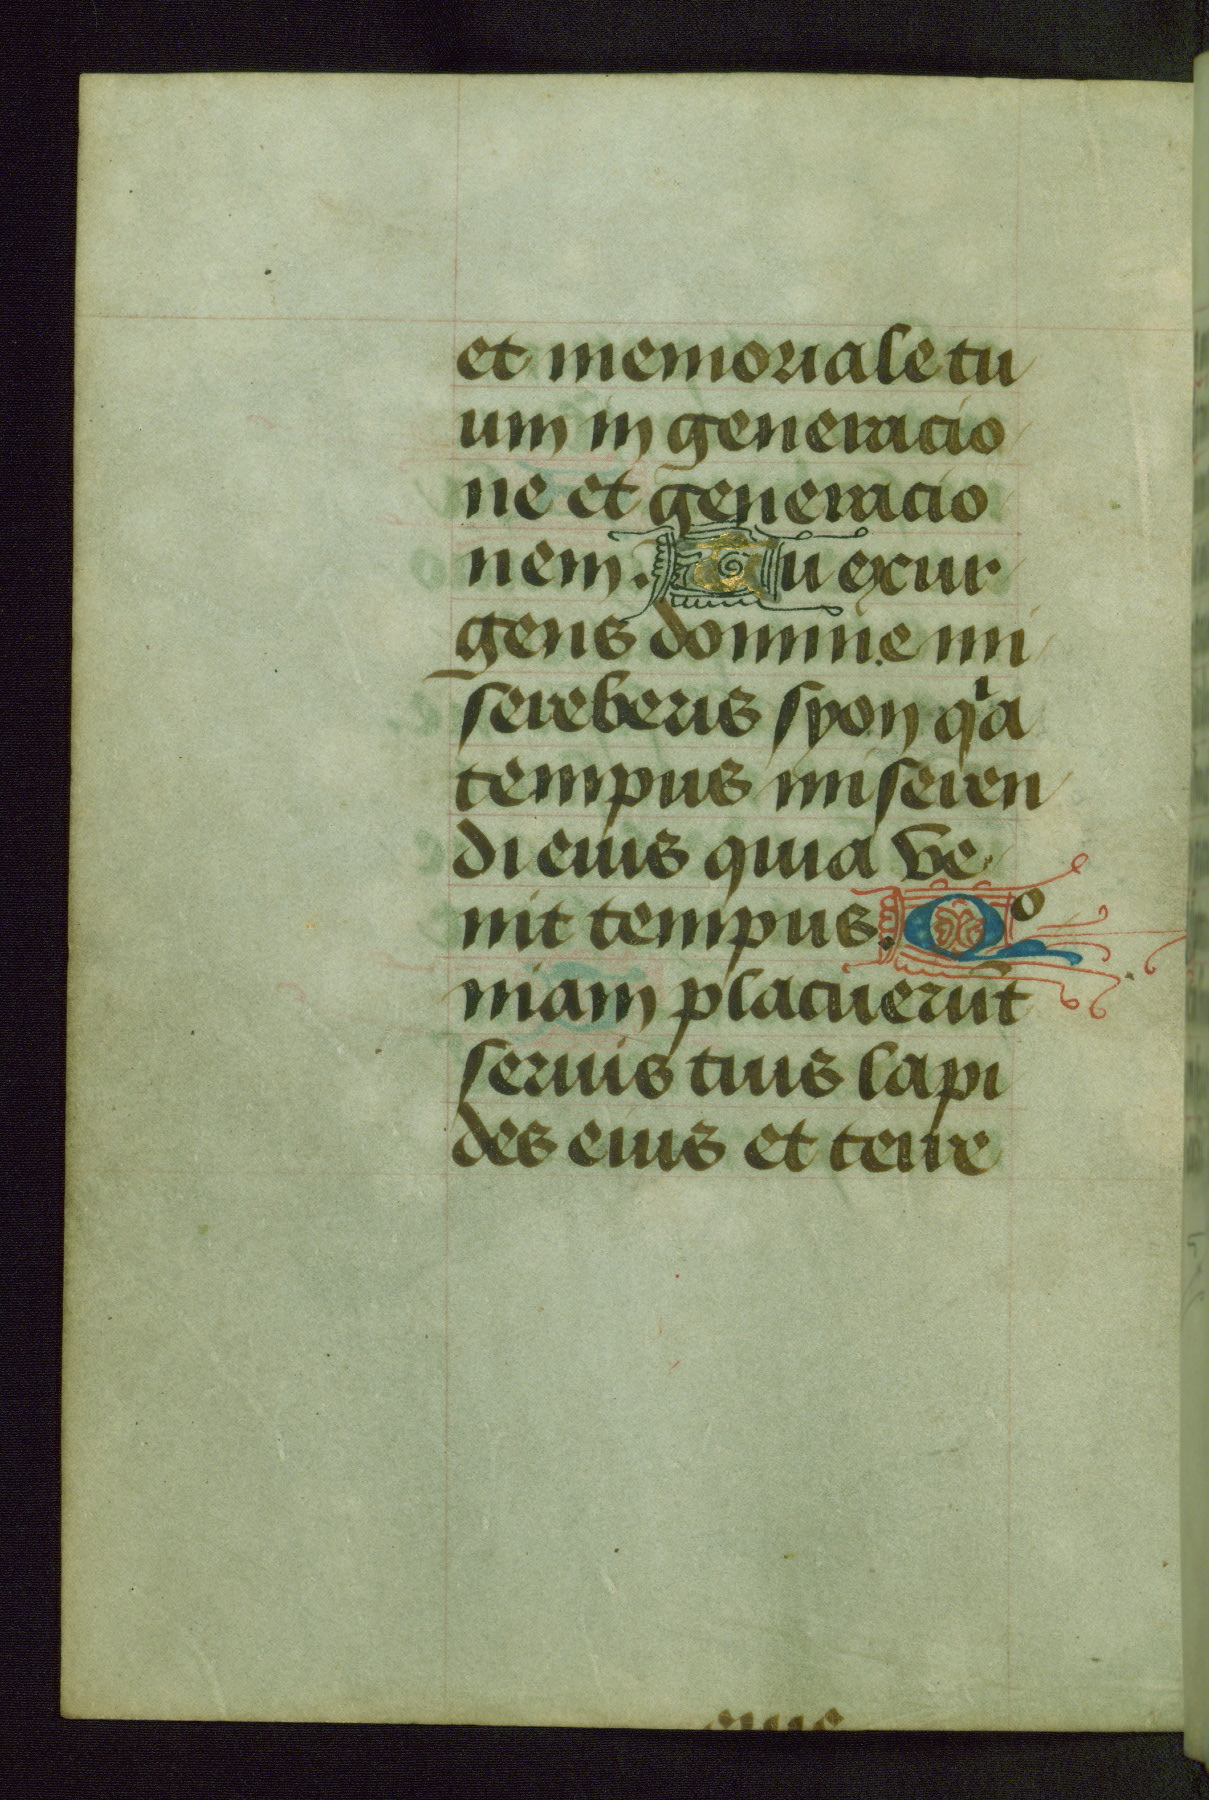 et memoriale tu
um in generacio
ne et generacio
nem. Tu exur
gens domine mi
sereberis syon qͥa
tempus miseren
di eius quia ve
nit tempus. Qo
niam placuerūt
seruis tuis lapi
des eius et terre
eius